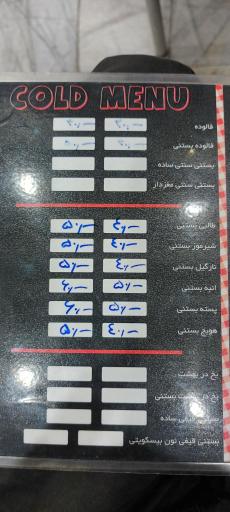 COLD MENU
فالوده ۳۰/- ۳۰/-
فالوده بستنی
بستنی سنتی ساده
بستنی سنتی مغزدار
طالبی بستنی ۴۰/- ۵۰/-
شیرموز بستنی ۴۰/- ۵۰/-
نارگیل بستنی ۴۰/- ۵۰/-
انبه بستنی ۵۰/- ۶۰/-
پسته بستنی ۵۰/- ۶۰/-
هویج بستنی ۴۰/- ۵۰/-
یخ در بهشت
یخ در بهشت بستنی
بستنی قیفی ساده
بستنی قیفی نون بیسکویتی